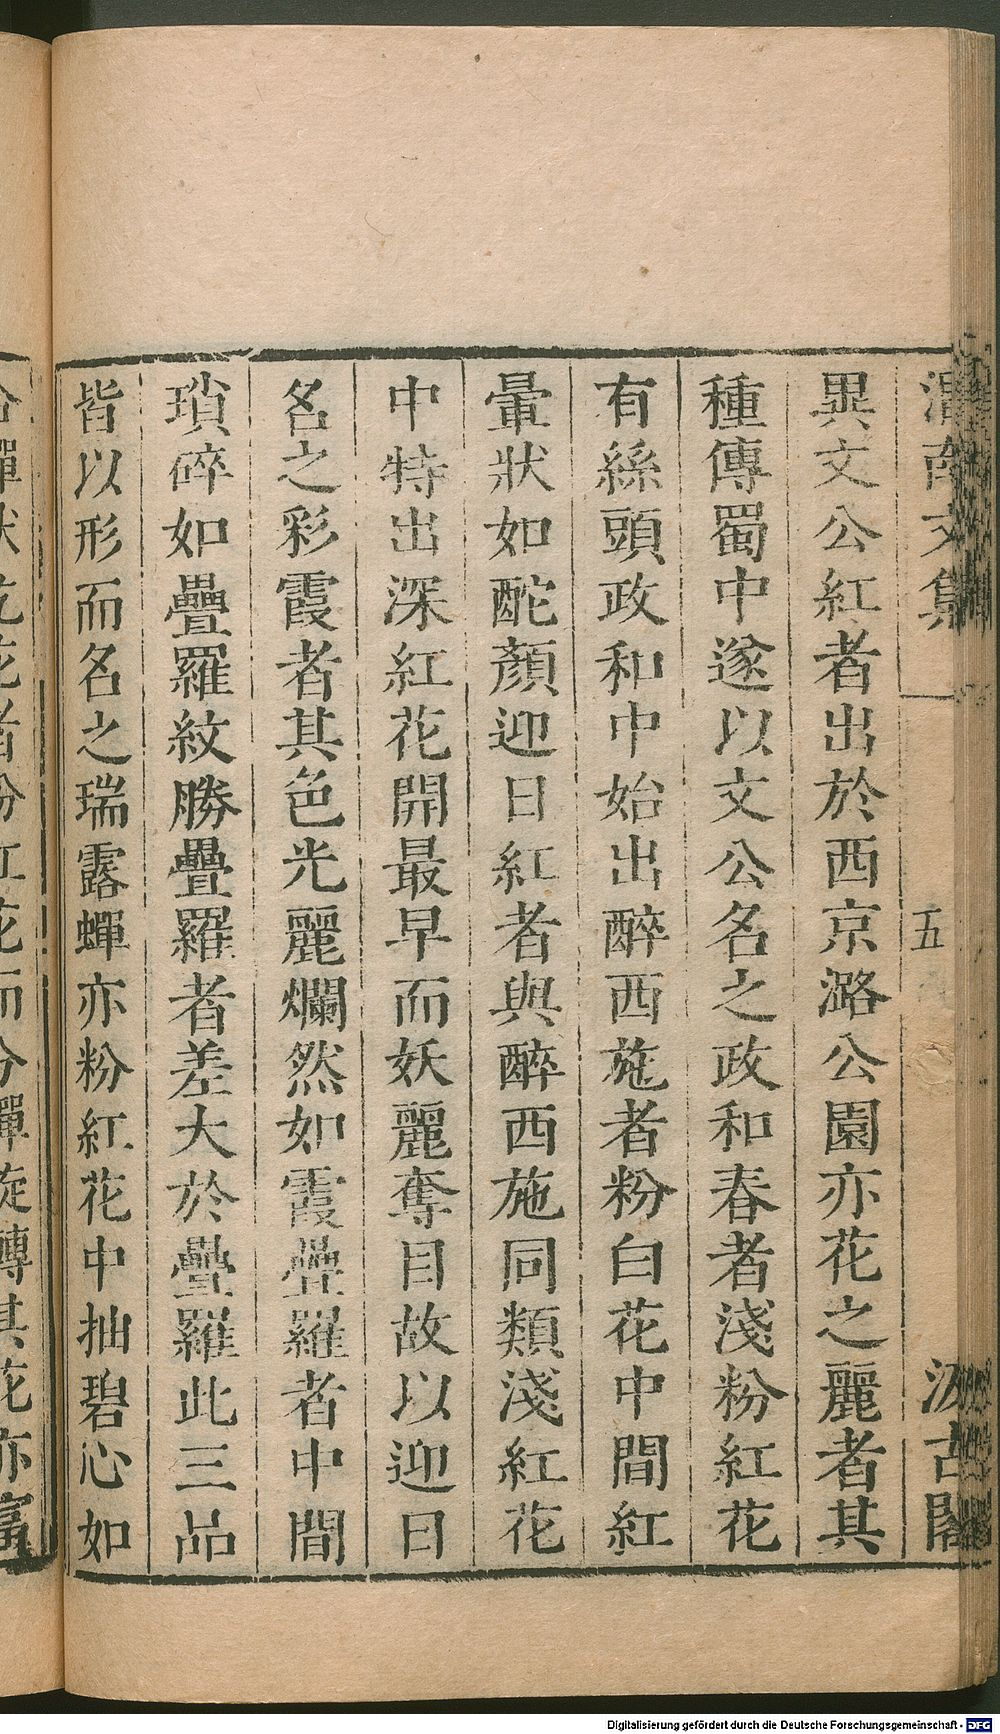 渭南文集
五
汲古閣
異文公紅者出於西京潞公園亦花之麗者其
種傳蜀中遂以文公名之政和春者淺粉紅花
有絲頭政和中始出醉西施者粉白花中間紅
暈狀如酡顏迎日紅者與醉西施同類淺紅花
中特出深紅花開最早而妖麗奪目故以迎日
名之彩霞者其色光麗爛然如霞疊羅者中間
瑣碎如疊羅紋勝疊羅者差大於疊羅此三品
皆以形而名之瑞露蟬亦粉紅花中抽碧心如
合蟬狀乾花者粉紅花而分蟬旋轉其花亦富
Digitalisierung gefördert durch die Deutsche Forschungsgemeinschaft - DFG